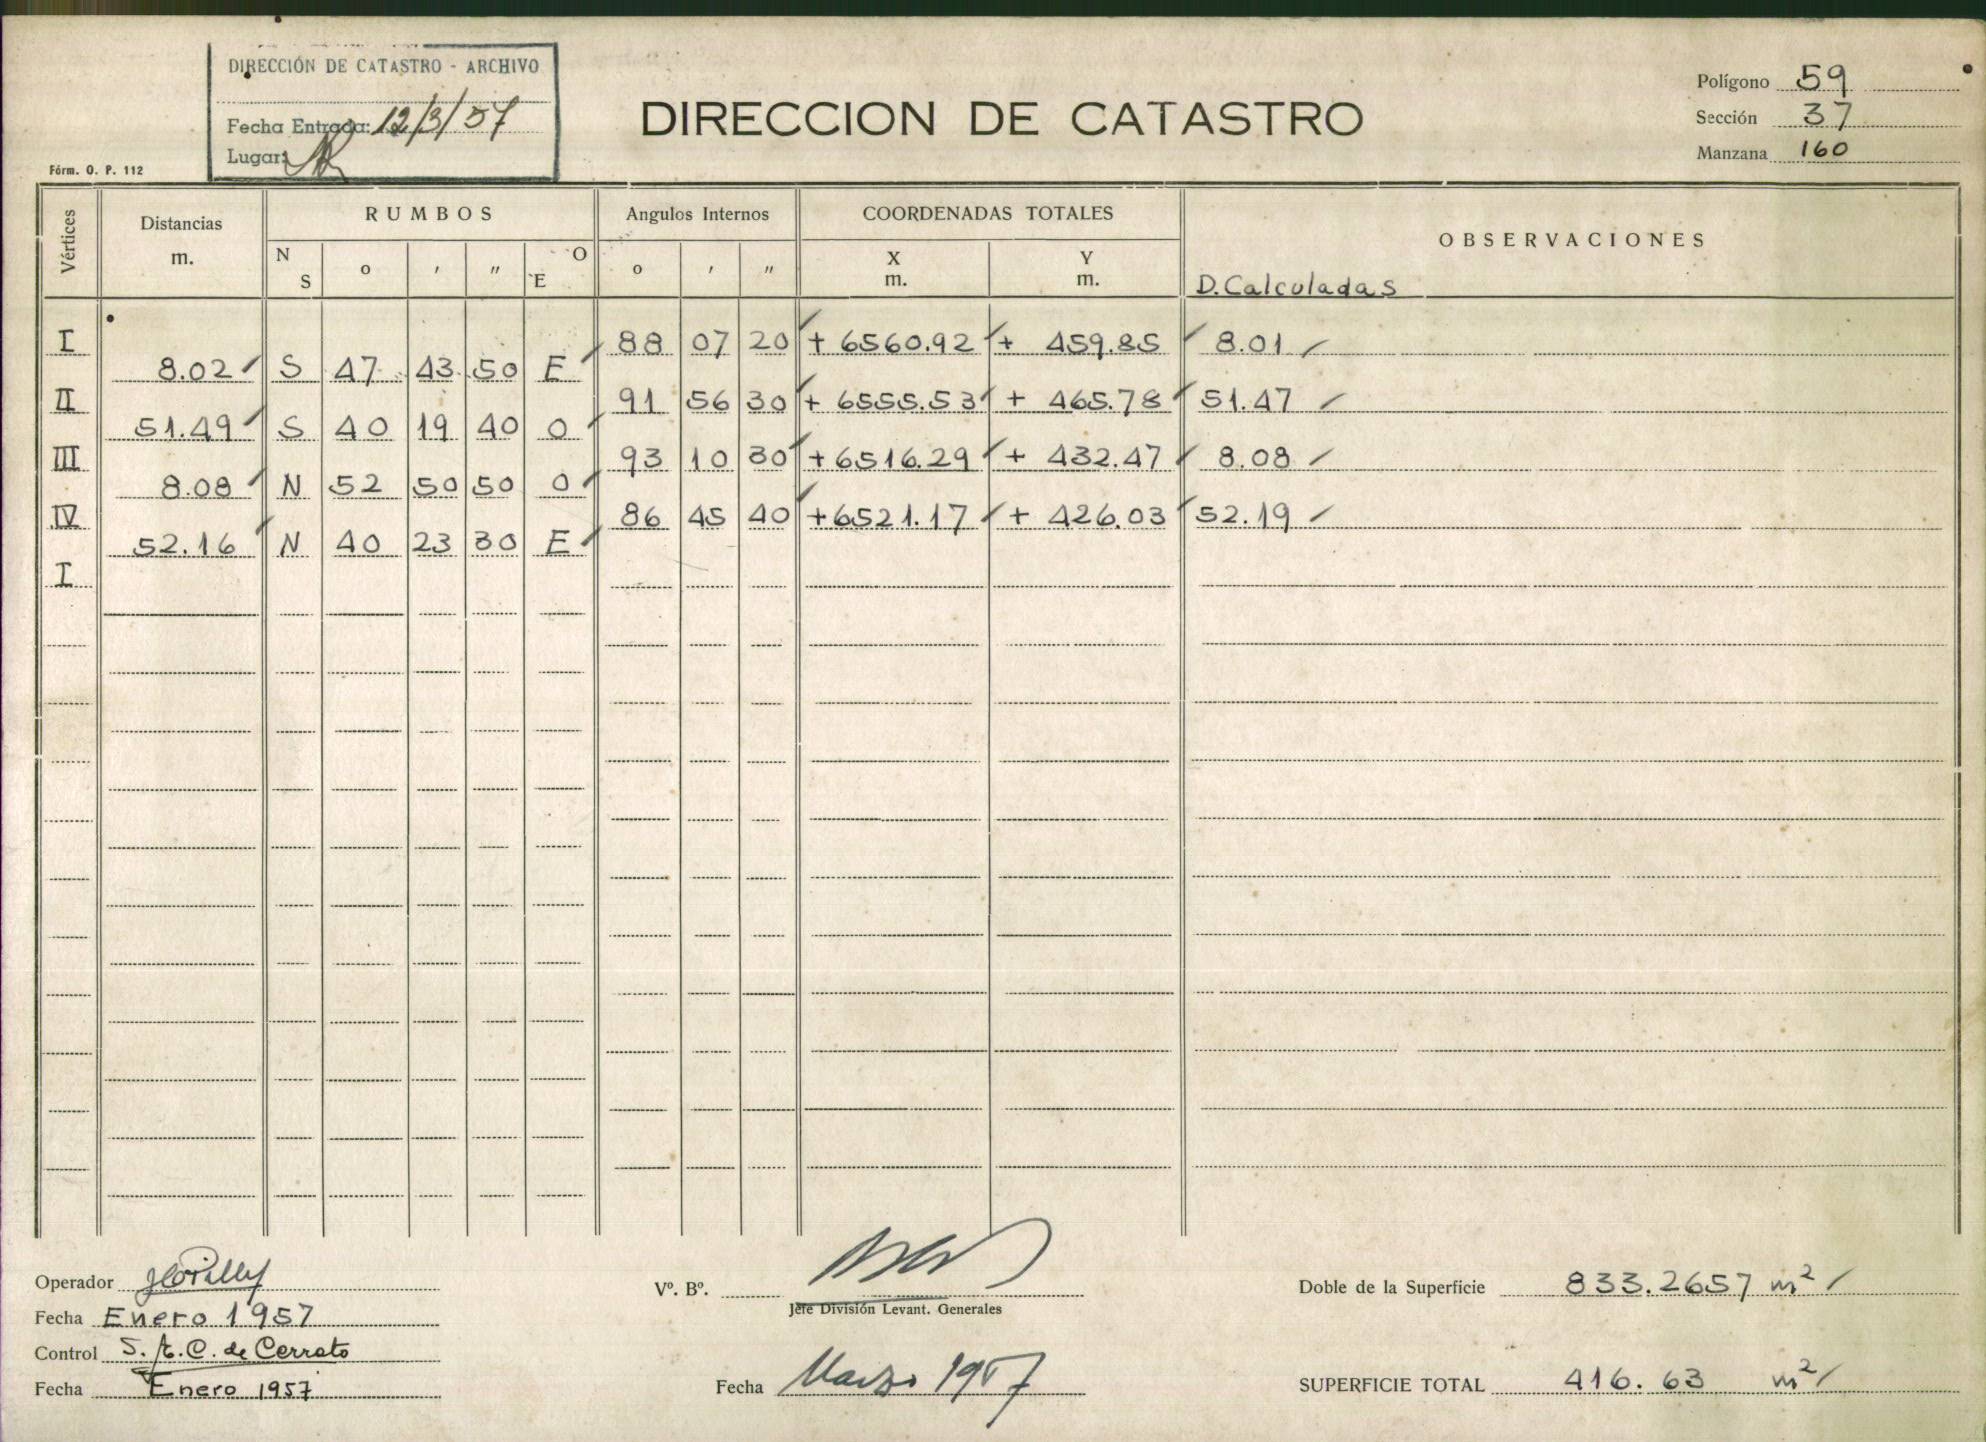 DIRECCIÓN DE CATASTRO - ARCHIVO
Fecha Entrada: 12/3/57
Lugar:
Fórm. O. P. 112
DIRECCION DE CATASTRO
Polígono 59
Sección 37
Manzana 160
Vértices Distancias m. RUMBOS Angulos Internos COORDENADAS TOTALES OBSERVACIONES
N S o ' " E O o ' " X m. Y m. D. Calculadas
I 88 07 20 + 6560.92 + 459.85 8.01
8.02 S 47 43 50 E
II 91 56 30 + 6555.53 + 465.78 51.47
51.49 S 40 19 40 O
III 93 10 30 + 6516.29 + 432.47 8.08
8.08 N 52 50 50 O
IV 86 45 40 + 6521.17 + 426.03 52.19
52.16 N 40 23 30 E
I
Operador
Fecha Enero 1957
Control S. A. C. de Cerrato
Fecha Enero 1957
Vº. Bº.
Jefe División Levant. Generales
Fecha Marzo 1957
Doble de la Superficie 833.2657 m²
SUPERFICIE TOTAL 416.63 m²